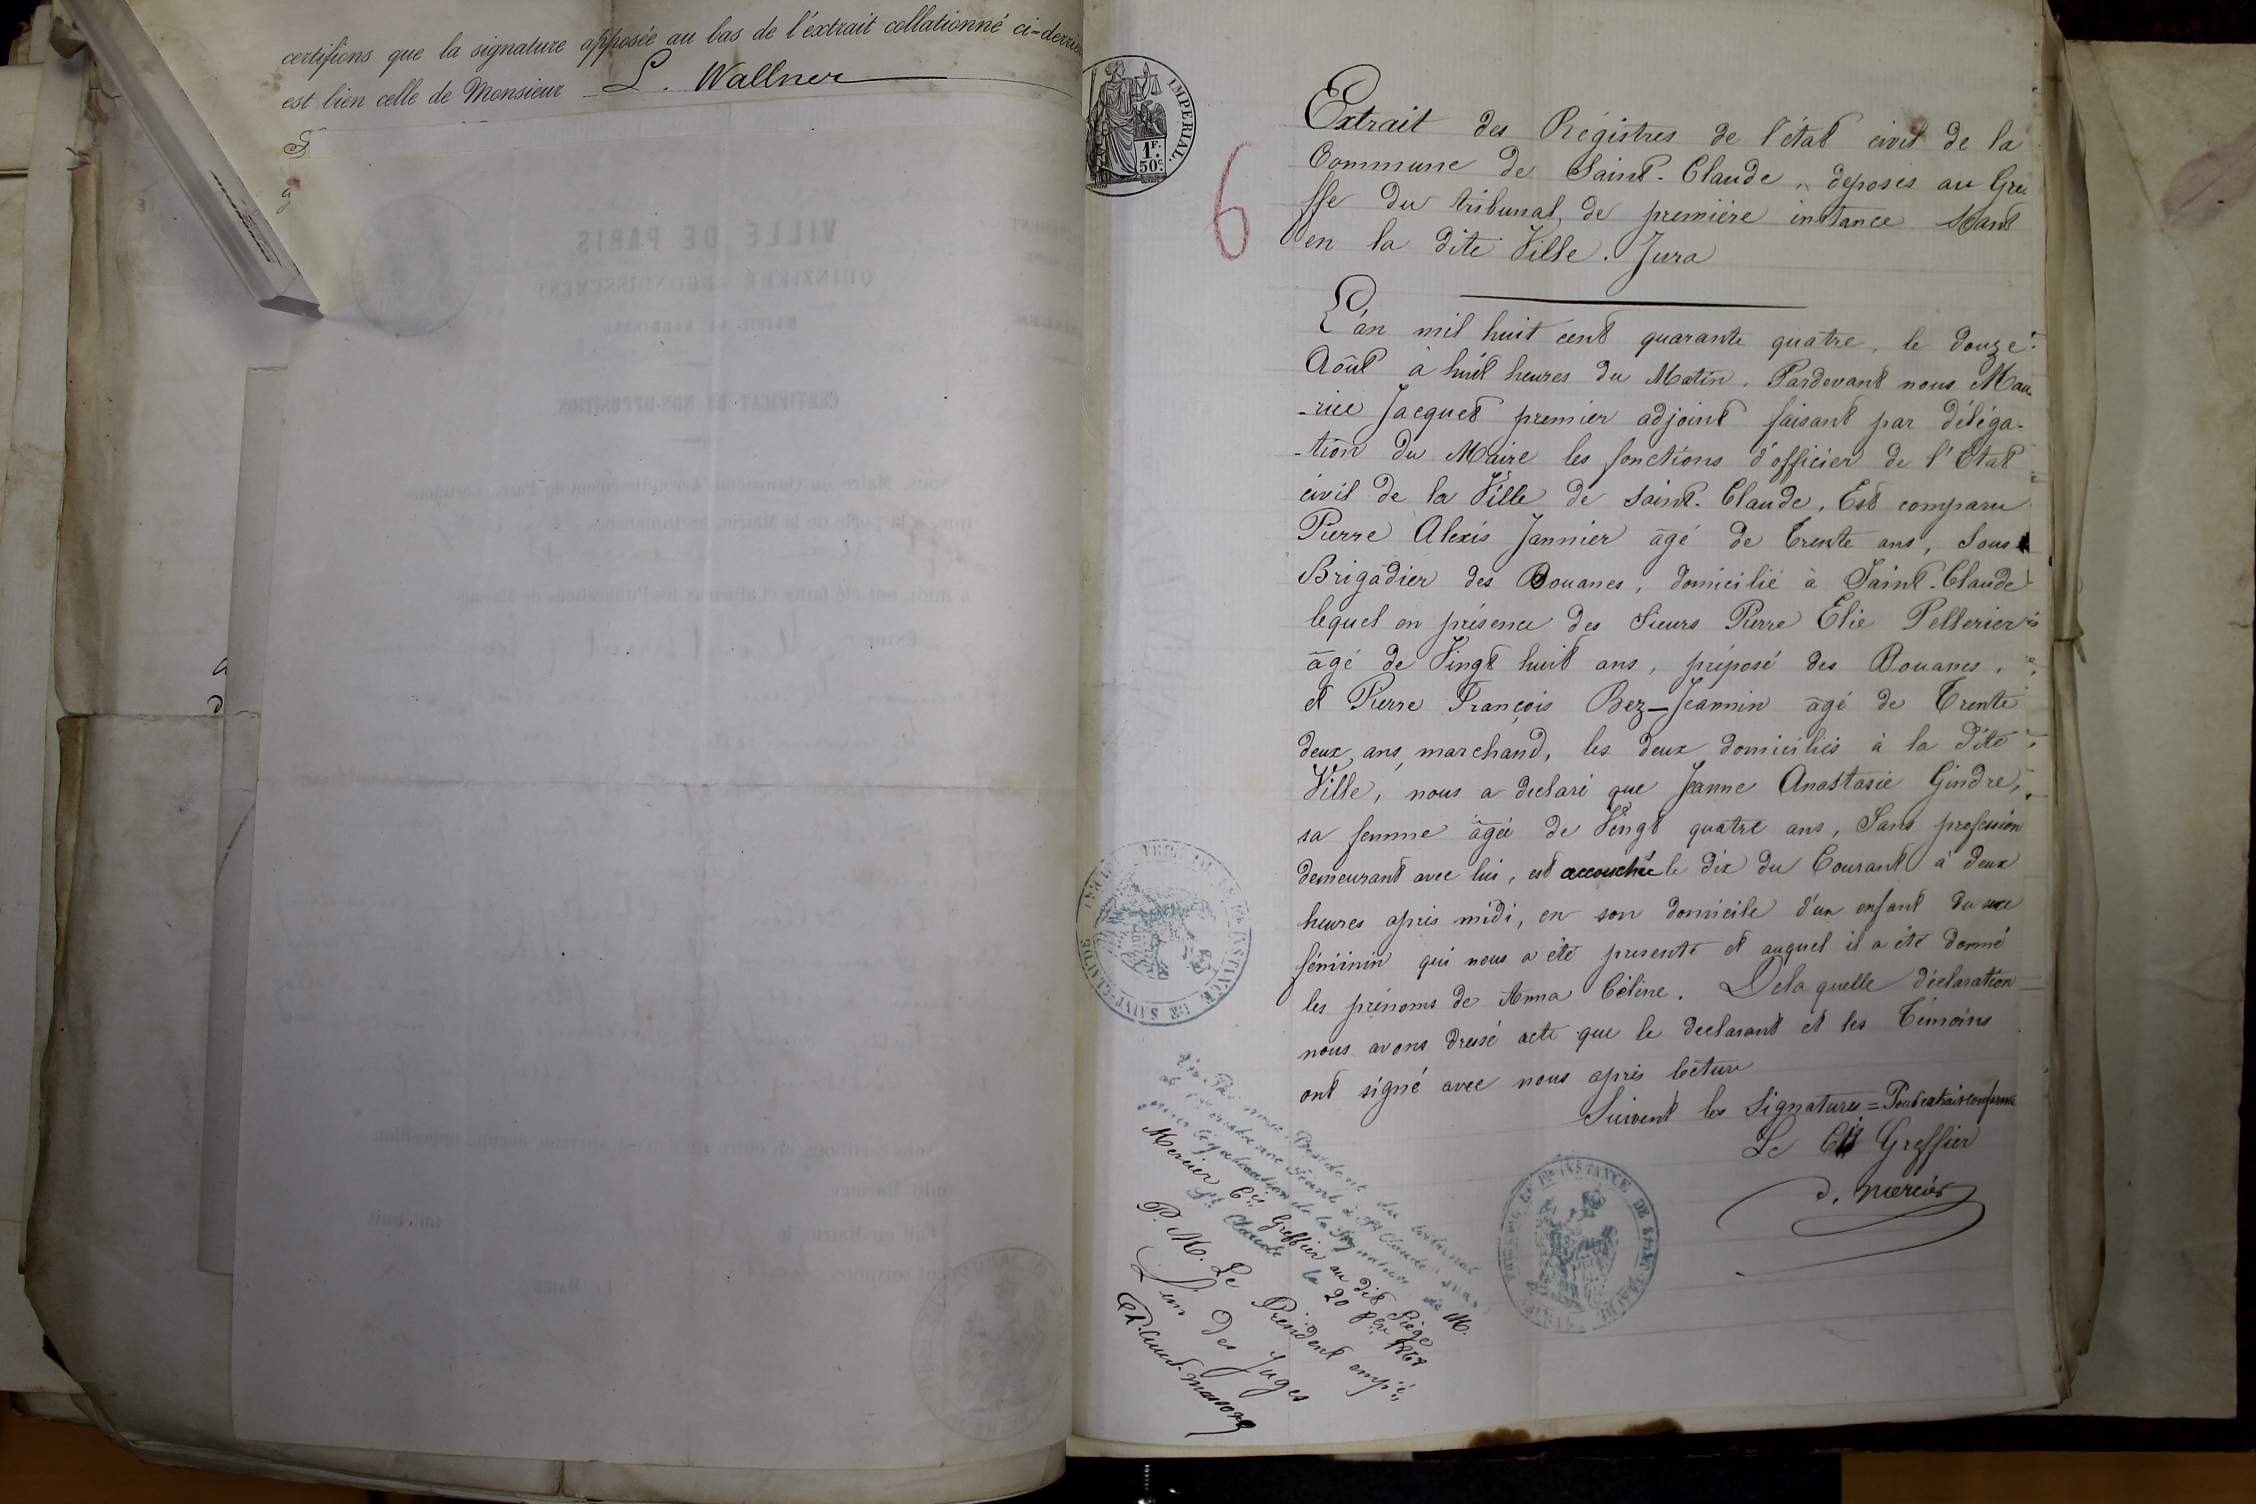 certifions que la signature apposée au bas de l'extrait collationné ci-derrière
est bien celle de Monsieur L. Wallner
IMPERIAL.
1F.
50c.
6
Extrait des Régistres de l'état civil de la
Commune de Saint-Claude, déposés au Gre
ffe du tribunal de première instance séant
en la dite Ville. Jura
L'an mil huit cent quarante quatre, le douze
Août à huit heures du Matin. Pardevant nous Mau
-rice Jacquet premier adjoint faisant par déléga-
-tion du Maire les fonctions d'officier de l'Etat
civil de la Ville de Saint-Claude, Est comparu
Pierre Alexis Jannier âgé de trente ans, Sous
Brigadier des Douanes, domicilié à Saint-Claude
lequel en présence des Sieurs Pierre Elie Pellerier
âgé de Vingt huit ans, préposé des Douanes,
et Pierre François Bez-Jeannin âgé de Trente
deux ans, marchand, les deux domiciliés à la dite
Ville, nous a déclaré que Jeanne Anastasie Gindre,
sa femme âgée de Vingt quatre ans, Sans profession
demeurant avec lui, est accouchée le dix du Courant à deux
heures après midi, en son domicile d'un enfant du sexe
féminin qui nous a été présenté et auquel il a été donné
les prénoms de Anna Céline. De la quelle déclaration
nous avons dressé acte que le déclarant et les témoins
ont signé avec nous après lecture
Suivent les Signatures = Pour extrait conforme
Le Cis Greffier
d. Mercier
INSTANCE DE SAINT-CLAUDE
Ire INSTANCE DE SAINT-CLAUDE
Vu Par nous Président du tribunal
de 1re instance Séant à St Claude
pour légalisation de la Signature de M.
Mercier Cis Greffier au dit Siège
St Claude le 20 8bre 1868
P. M. Le Président emp.é
L'un des Juges
VILLE DE PARIS.
QUINZIÈME ARRONDISSEMENT
MAIRIE DE VAUGIRARD
CERTIFICAT DE NON-OPPOSITION.
Nous, Maire du Quinzième Arrondissement de Paris, Certifions
que, à la porte de la Mairie,
à midi, ont été faites et affichées les Publications de Mariage
ENTRE
Le Maire